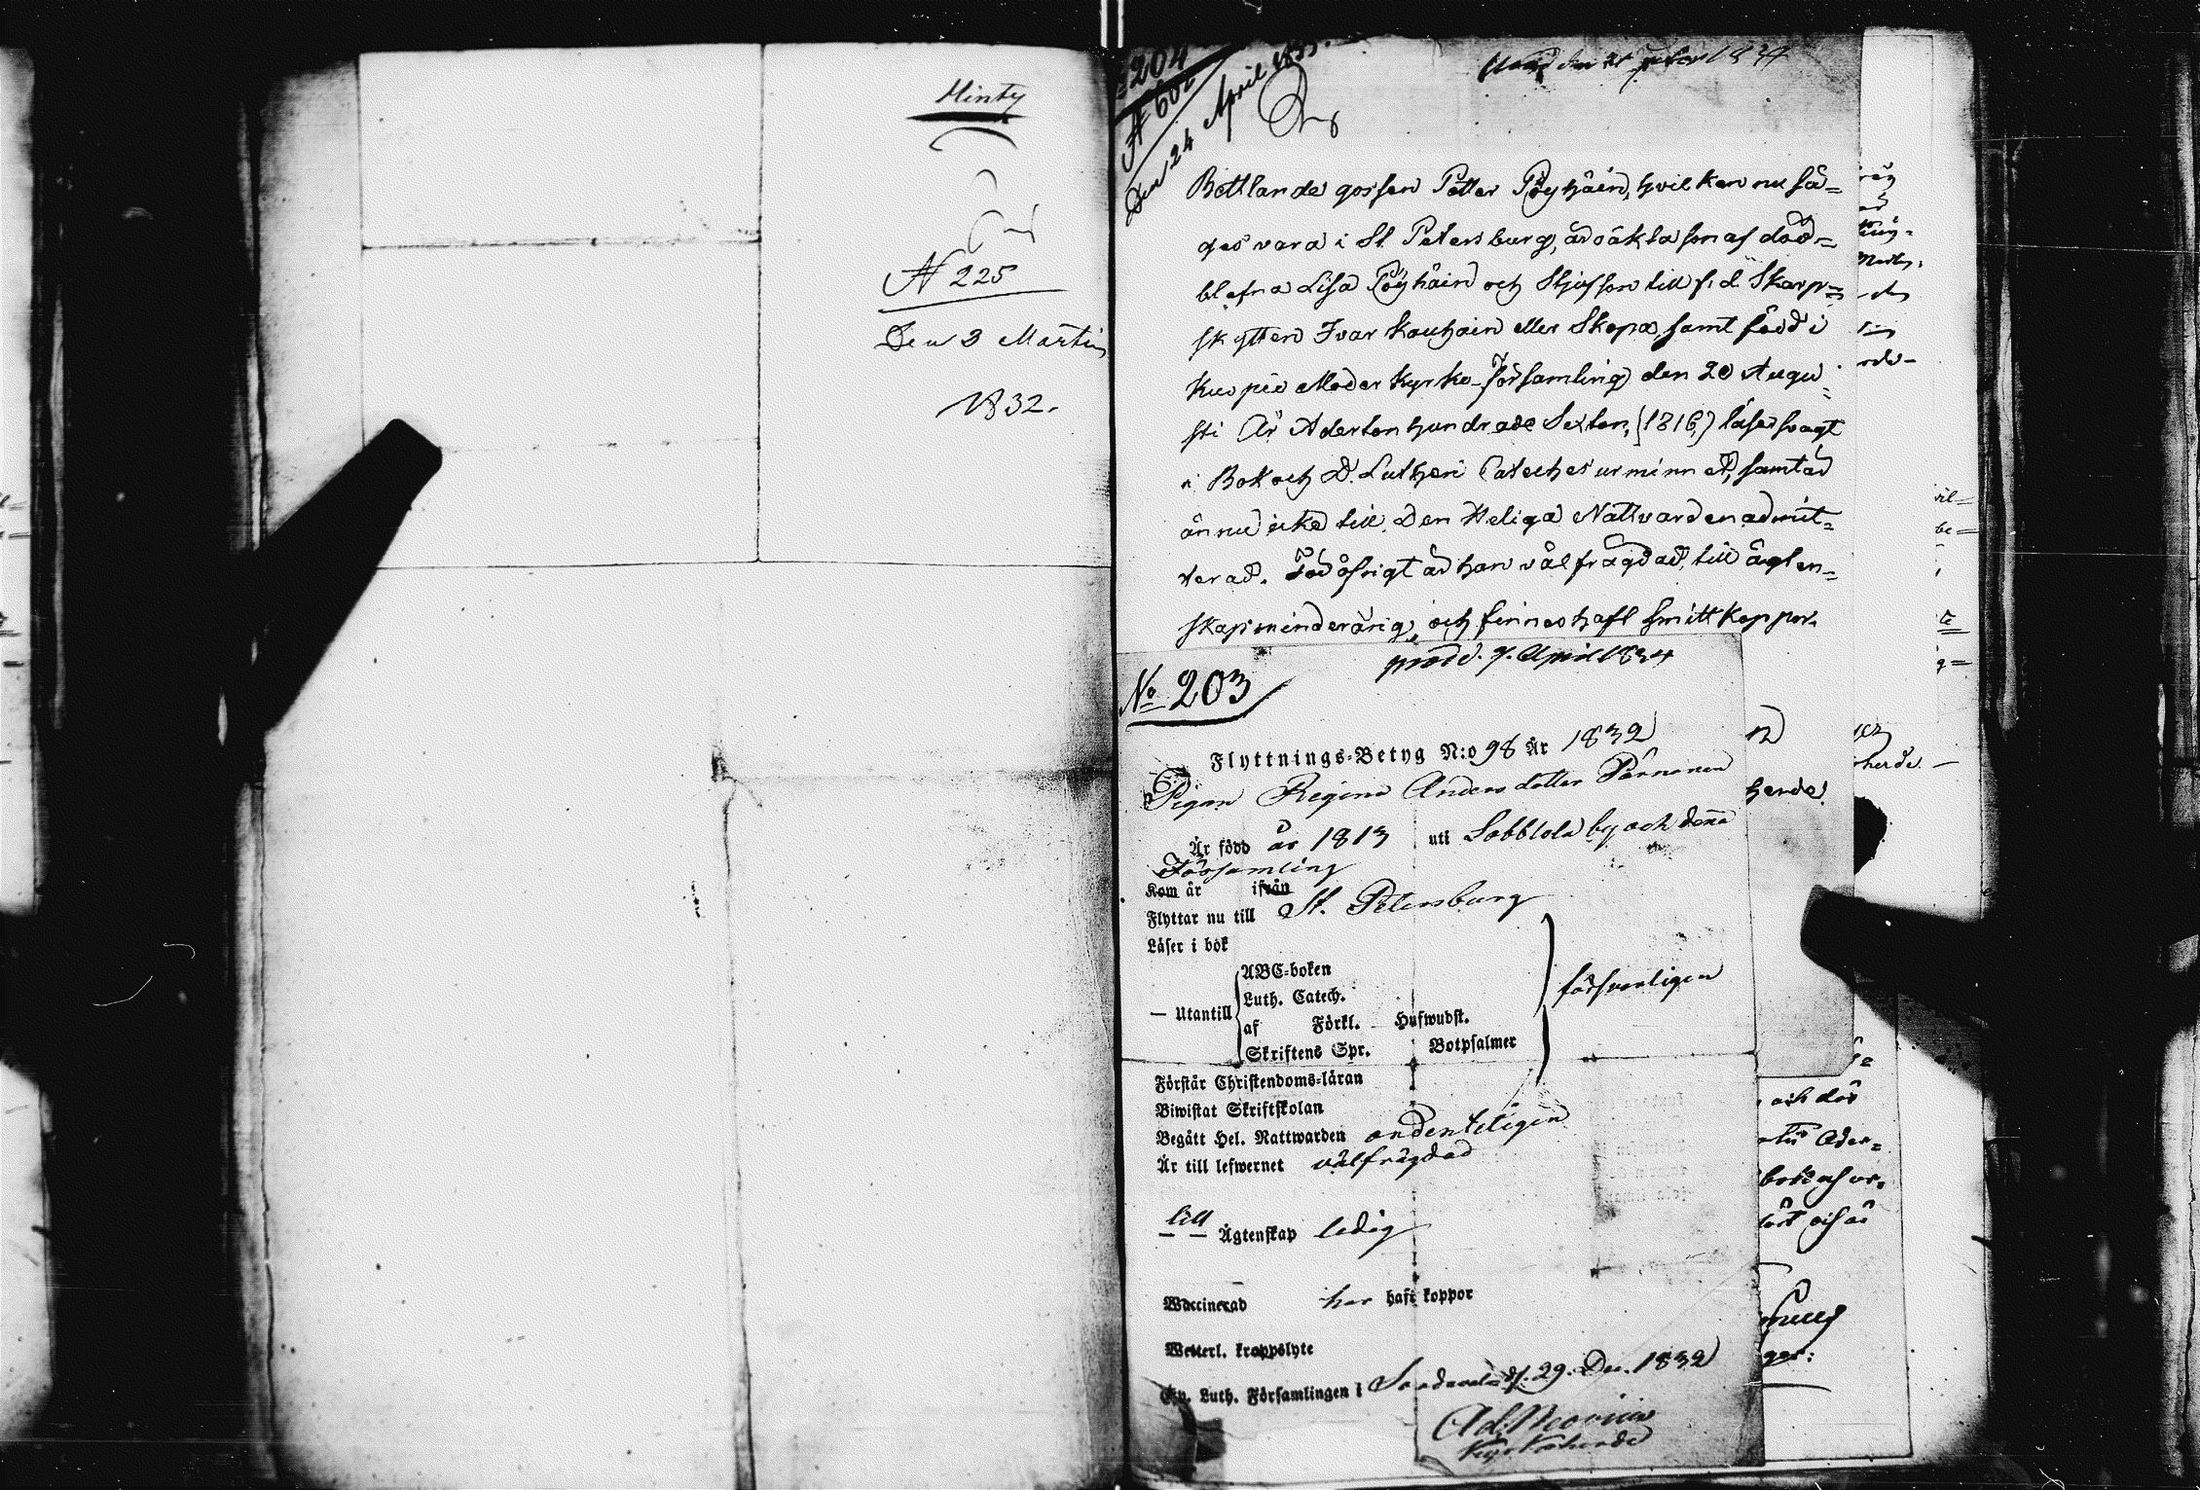 Minty
N 225
Den 3 Martii
1832.
204
N 602
Den 24 April 1833.
1834
Bettlande gossen Petter Pöyhäin, hvilken nu sä=
ges vara i St Petersburg, är oäkta son af död=
blefna Lisa Pöyhäin och Stjufson till f. d. Skarp=
skytten Ivar Kauhain eller Skopa, samt född i
Kuopio Moder Kyrko-Församling den 20 Augu=
sti År Adertonhundrade Sexton, (1816,) läser svagt
i Bok och D. Lutheri Cateches ur minnet, samt är
ännu icke till Den Heliga Nattvarden admit=
terad. För öfrigt är han välfrägdad, till ägten=
skap minderårig, och finnes haft smittkoppor.
prod. 7. April 1834
No 203
Flyttnings-Betyg N:o 98 År 1832
Pigan Regina Andersdotter Pärnänen
Är född år 1813 uti Sobblola by och denna
Församling
Kom år ifrån
Flyttar nu till St. Petersburg
Läser i bok
ABC-boken
Luth. Catech.
— Utantill af Förkl. Huswudst.
Skriftens Spr. Botpsalmer
försvarligen
Förstår Christendoms-läran
Biwistat Skriftskolan
Begått Hel. Nattwarden ordenteligen
Är till lefwernet välfrägdad
till
— — Ägtenskap ledig
Waccinerad har haft koppor
Wetterl. kroppslyte
Ev. Luth. Församlingen i Sordavala d. 29. Dec. 1832
Ad. Neovius
Kyrkoherde